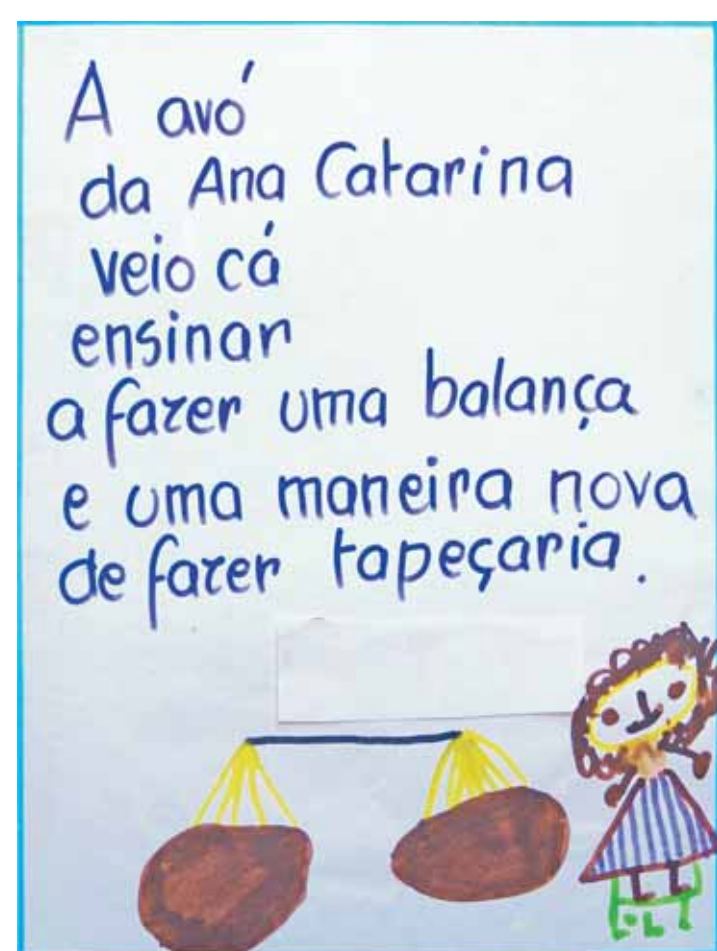 A avó
da Ana Catarina
veio cá
ensinar
a fazer uma balança
e uma maneira nova
de fazer tapeçaria.